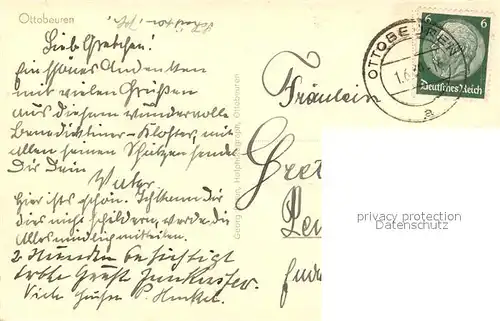 Ottobeuren
Lieb Gretchen!
Ein schönes Andenken
mit vielen Grüßen
aus diesem wundervollen
Benediktiner-Kloster, mit
allen seinen Schätzen, sendet
Dir Dein
Vater
Hier ists schön. Ich kann Dir
dies nicht schildern, werde dir
Alles mündlich mitteilen.
2 Stunden besichtigt
Viele Grüße P. Henkel.
Fräulein
Gret
OTTOBEUREN
1.6.
a
6 6
Deutsches Reich
privacy protection
Datenschutz